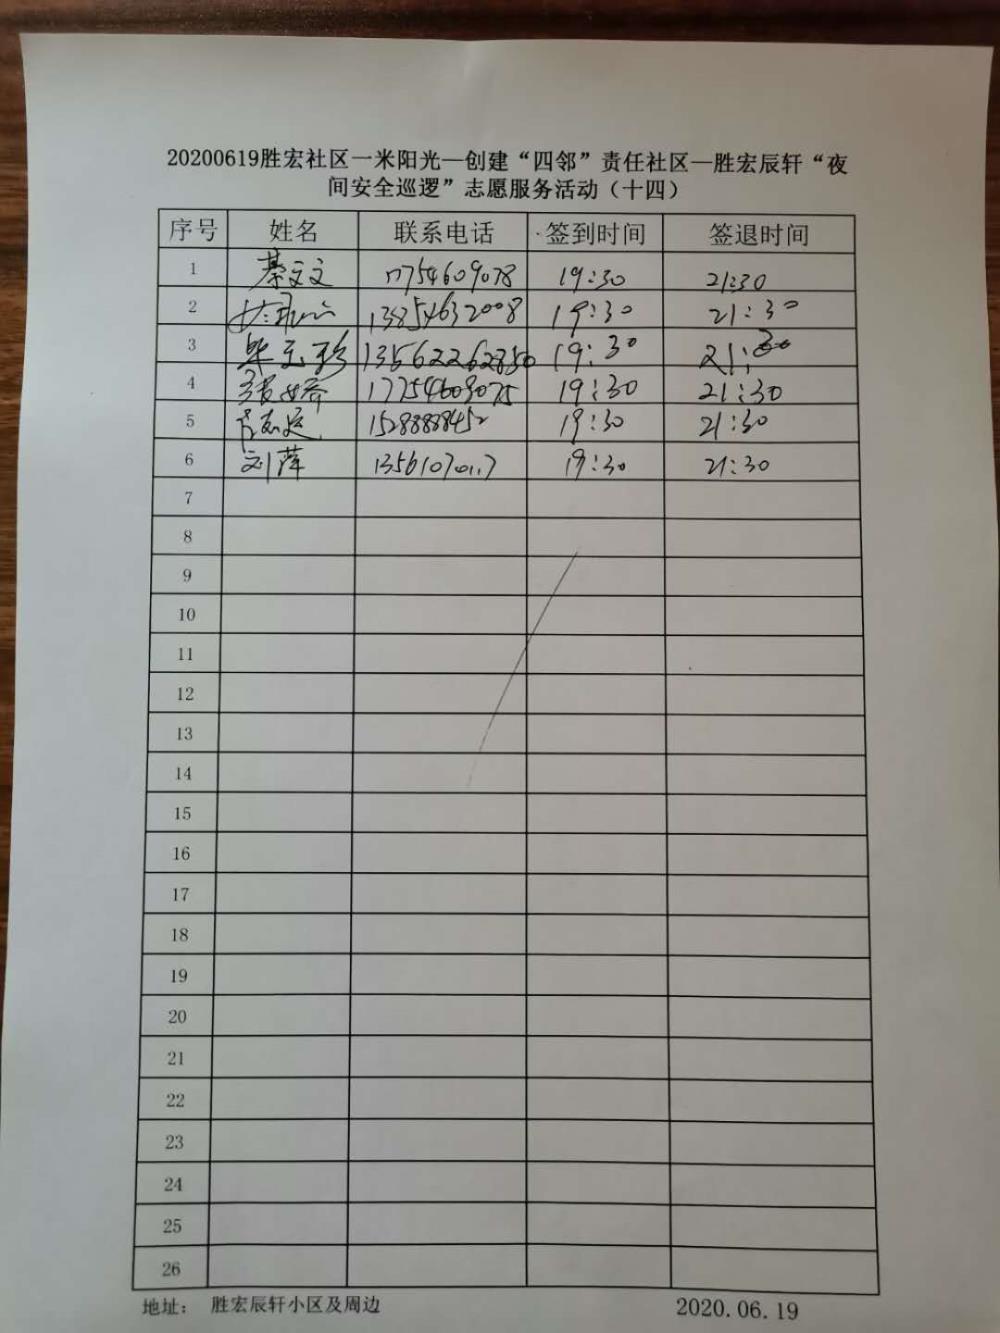 20200619胜宏社区一米阳光—创建“四邻”责任社区—胜宏辰轩“夜
间安全巡逻”志愿服务活动（十四）
序号 姓名 联系电话 签到时间 签退时间
1 綦文文 17754609078 19:30 21:30
2 13854632008 19:30 21:30
3 13562262850 19:30 21:30
4 17754609075 19:30 21:30
5 15288888452 19:30 21:30
6 刘萍 13561070117 19:30 21:30
7
8
9
10
11
12
13
14
15
16
17
18
19
20
21
22
23
24
25
26
地址： 胜宏辰轩小区及周边 2020.06.19